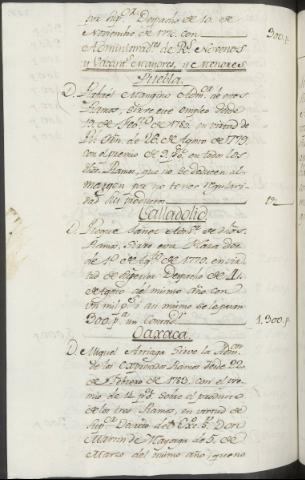 por Sup.or Despacho de 10. de
Noviembre de 1776. con 300.p.s
Administrad.s de R.s Novenos
y Vacan.s Mayores, y Menores
Puebla.
D. Rafael Mangino Adm.or de otros
Ramos, sirve este empleo desde
de 1780. en virtud de
R.l Orn. de 28. de Agosto de 1779.
con el premio de 3. p.% en todos los
Ramos, que no se deducen al
margen por no tener regulari-
dad su producto
Valladolid
D. Roque Yañez Adm.or de
Ramos. Sirve esta Plaza des-
de 1.o de Ag.to de 1770. en vir-
tud de Superior Despacho de 11.
de Agosto del mismo año con
un mil p.s
300.p.s un 1.300.p.s
Oaxaca.
D. Miguel Arriaga sirve la Adm.on
de los expresados Ramos desde 22
de Febrero de 1783. con el pre-
mio de 4. p.% sobre el producto
de los tres Ramos, en virtud de
Sup.or Decreto del Exc.o S.or Don
Martin de Mayorga de 5. de
Marzo del mismo año, que no